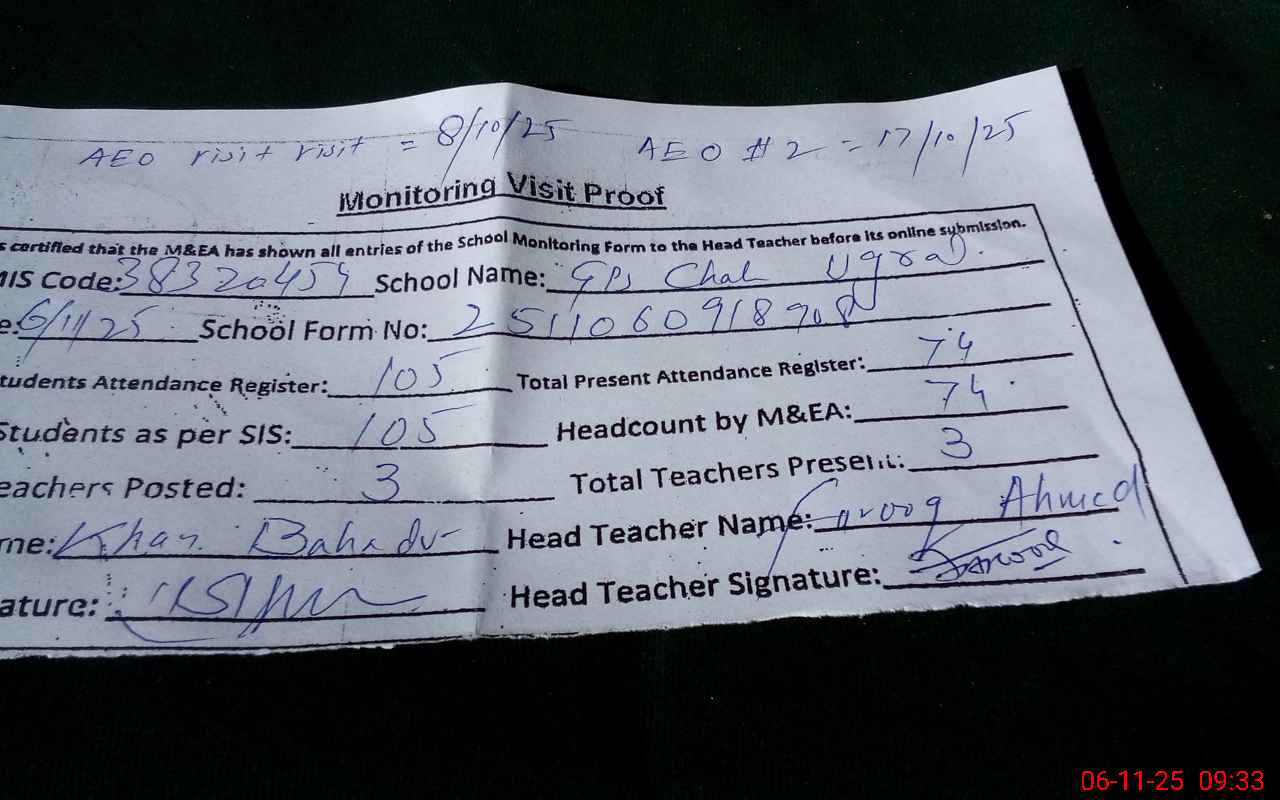 AEO visit visit = 8/10/25 AEO # 2 = 17/10/25
Monitoring Visit Proof
s certified that the M&EA has shown all entries of the School Monitoring Form to the Head Teacher before its online submission.
MIS Code: 38320454 School Name: GPS Chak Ugra
e: 6/11/25 School Form No: 2511060918908
tudents Attendance Register: 105 Total Present Attendance Register: 74
Students as per SIS: 105 Headcount by M&EA: 74
eachers Posted: 3 Total Teachers Present: 3
me: Khan Bahadur Head Teacher Name: Farooq Ahmed
ature: Head Teacher Signature: Farooq
06-11-25 09:33